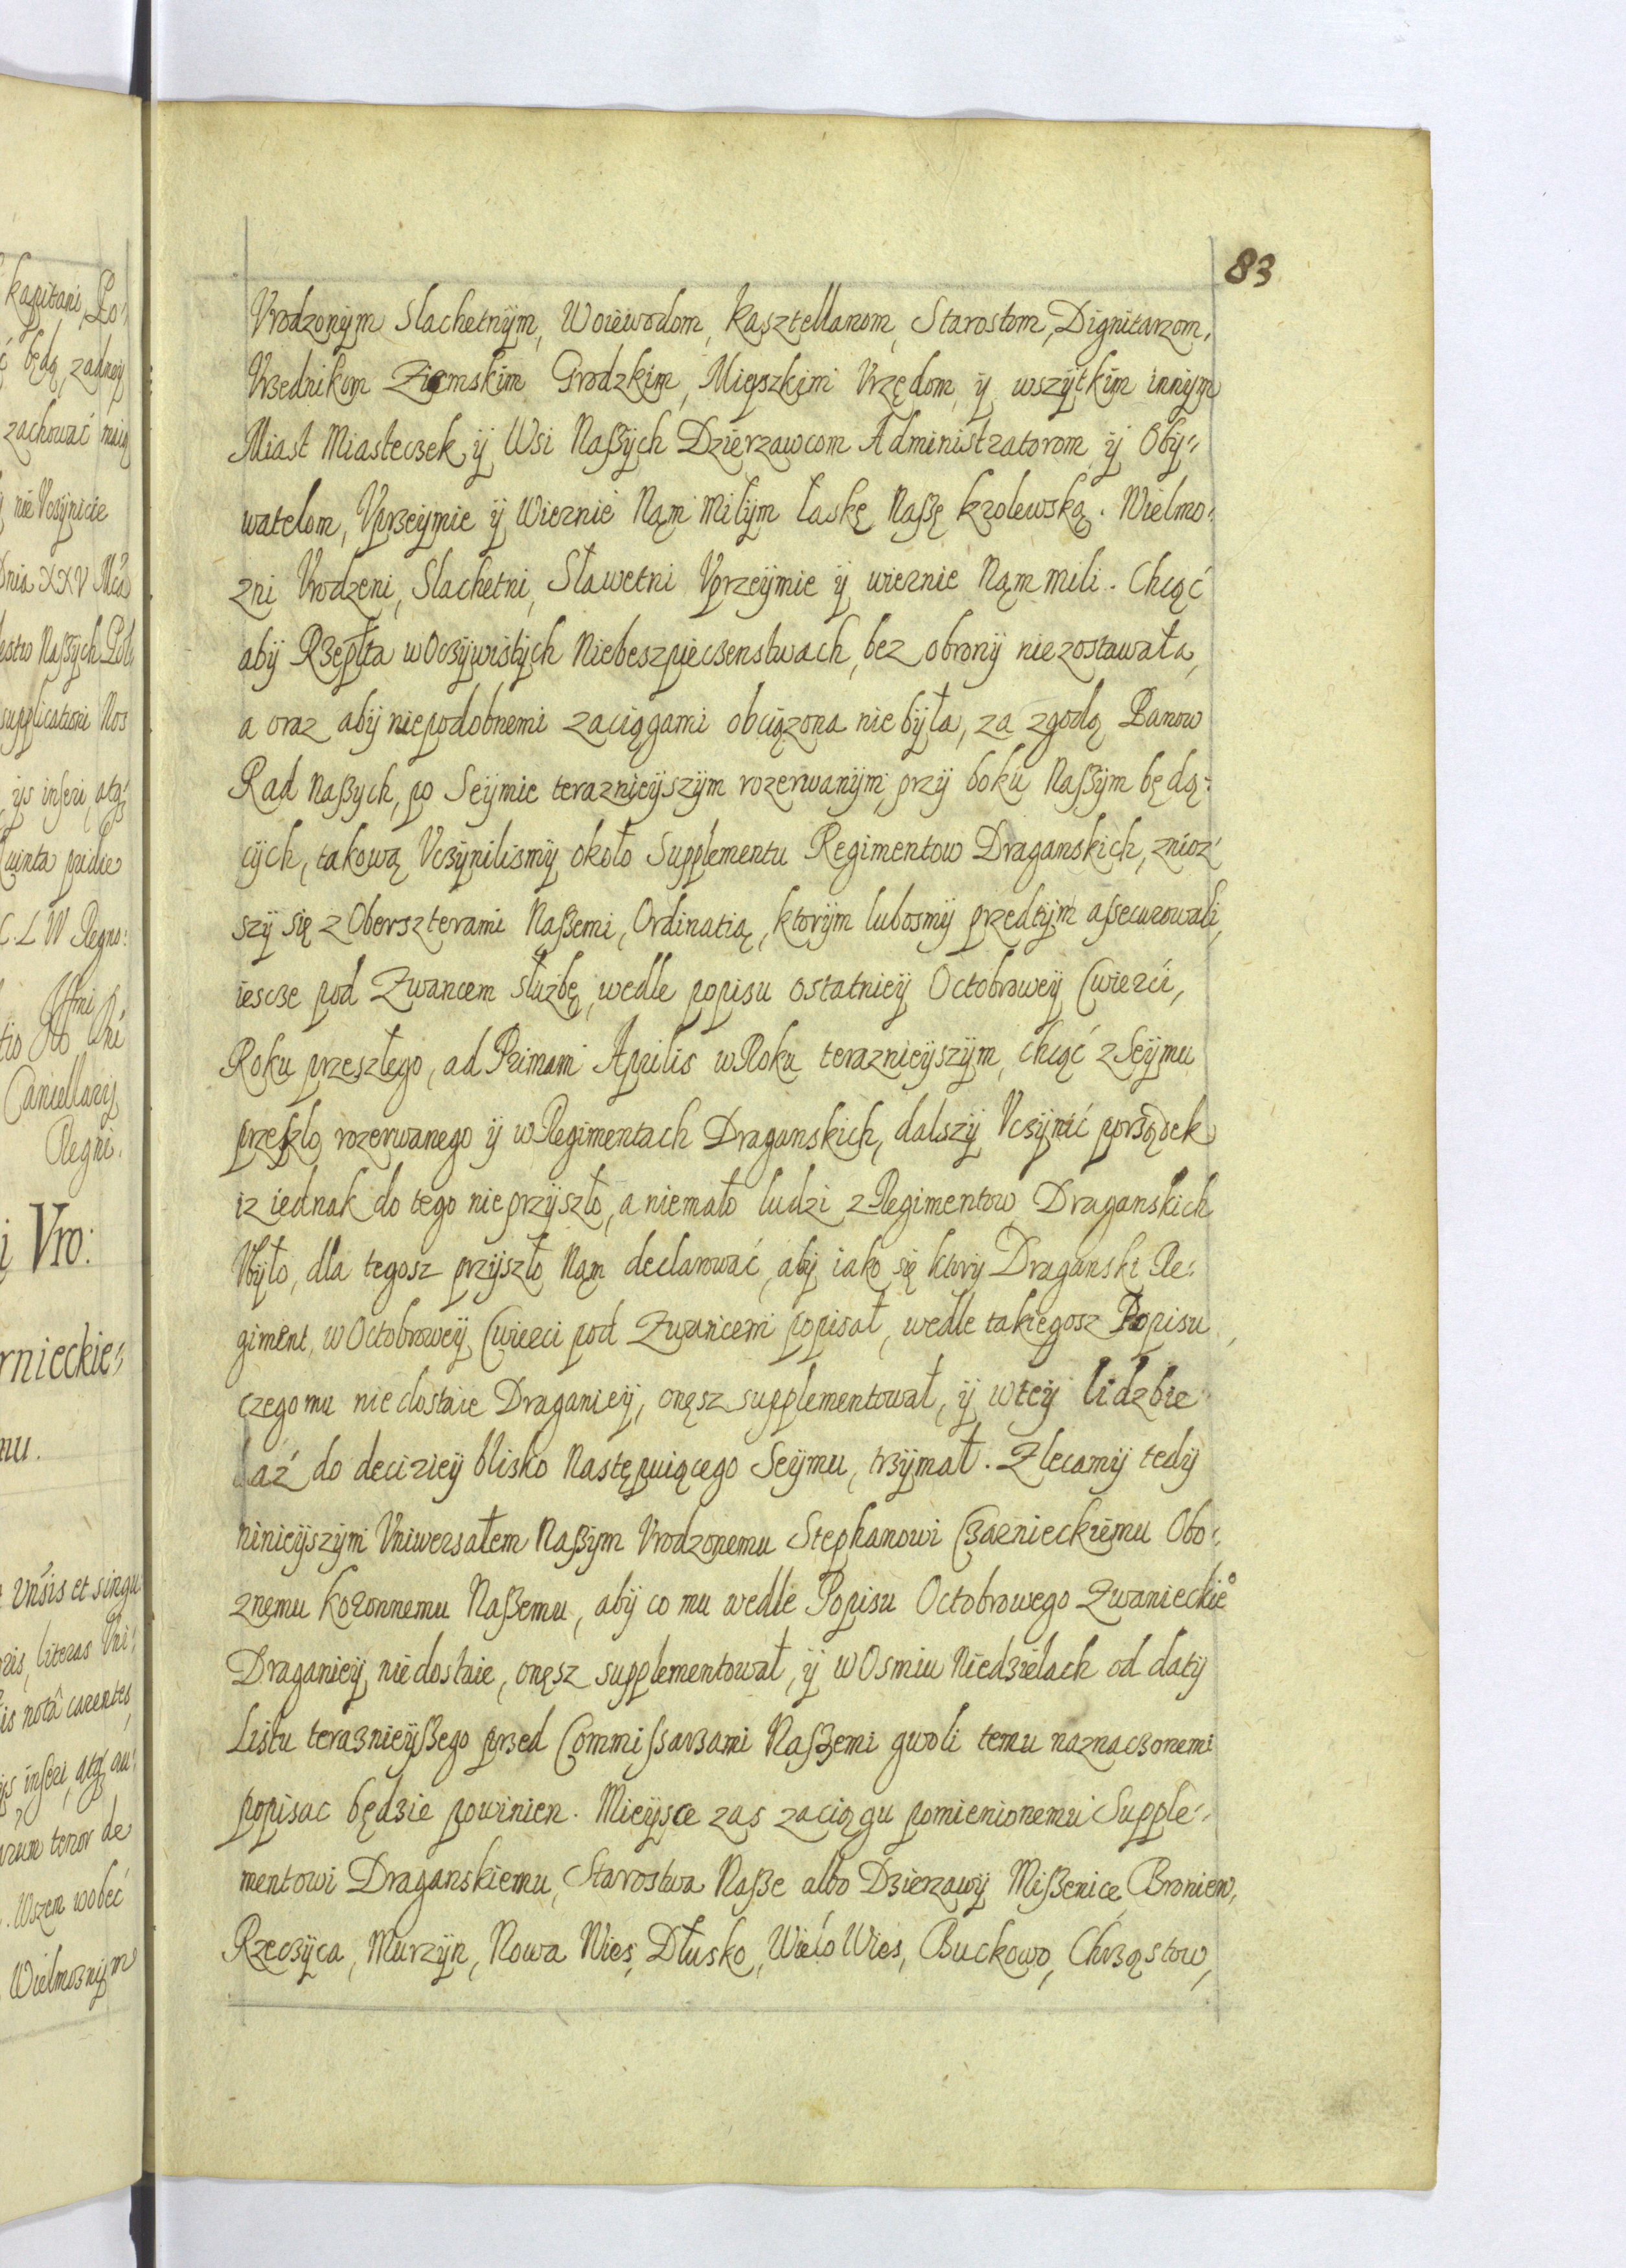 83
Vrodzonÿm Slachetnÿm, Woiewodom, Kasztellanom, Starostom, Dignitarzom,
Vrzednikom Ziemskim Grodzkim, Mieyszkim Vrzędom, ÿ wszÿtkim innÿm
Miast Miasteczek ÿ Wsi Naßÿch Dzierzawcom Administratorom ÿ Obÿ:
watelom, Vprzeÿmie ÿ Wiernie Nąm Miłÿm łaskę Naßę krolewską. Wielmo:
zni Vrodzeni, Slachetni, Sławetni Vprzeÿmie ÿ wiernie Nąm mili. Chcąć
abÿ Rzeplta w Oczÿwistÿch Niebeszpieczenstwach, bez obronÿ niezostawała,
a oraz abÿ niepodobnemi zaciągami obciązona nie bÿła, za zgodą Panow
Rad Naßÿch, po Seÿmie teraznieÿszÿm rozerwanÿm, przÿ boku Naßÿm będą:
cÿch, takową Vczÿnilismÿ około Supplementu Regimentow Draganskich, znioz
szÿ się z Oberszterami Naßemi, Ordinatią, ktorÿm lubosmÿ przedtÿm assecurowali,
iescze pod Zwancem służbę, wedle popisu ostatnieÿ Octobroweÿ Cwierci,
Roku przeszłego, ad Primam Aprilis w Roku teraznieÿszÿm, chcąć z Seÿmu
przeßło rozerwanego ÿ w Regimentach Draganskich, dalszÿ Vczÿnić porządek
iz iednak do tego nie przÿszło, a niemało ludzi z Regimentow Draganskich
Vbÿło, dla tegosz przÿszło Nąm declarować, abÿ iako się ktorÿ Draganski Re:
giment, w Octobroweÿ Cwierci pod Zwancem popisał, wedle takiegosz Popisu
czego mu niedostaie Draganieÿ, onęsz supplementował, ÿ w teÿ lidzbie
aż do decizieÿ blisko Następuiącego Seÿmu, trzÿmał. Zlecamÿ tedÿ
ninieÿszÿm Vniwersałem Naßÿm Vrodzonemu Stephanowi Czarnieckiemu Obo:
znemu koronnemu Naßemu, abÿ co mu wedle Popisu Octobrowego Zwanieckie°
Draganieÿ niedostaie, onęsz supplementował, ÿ w Osmiu Niedzielach od datÿ
Listu teraznieÿßego przed Commissarzami Naßemi gwoli temu naznaczonemi
popisac będzie powinien. Mieÿsce zas zaciągu pomienionemu Supple:
mentowi Draganskiemu, Starostwa Naße albo Dzierzawÿ Mißenice, Broniew,
Rzeczÿca, Murzÿn, Nowa Wies, Dłusko, Wielo Wies, Buckowo, Chrząstow,